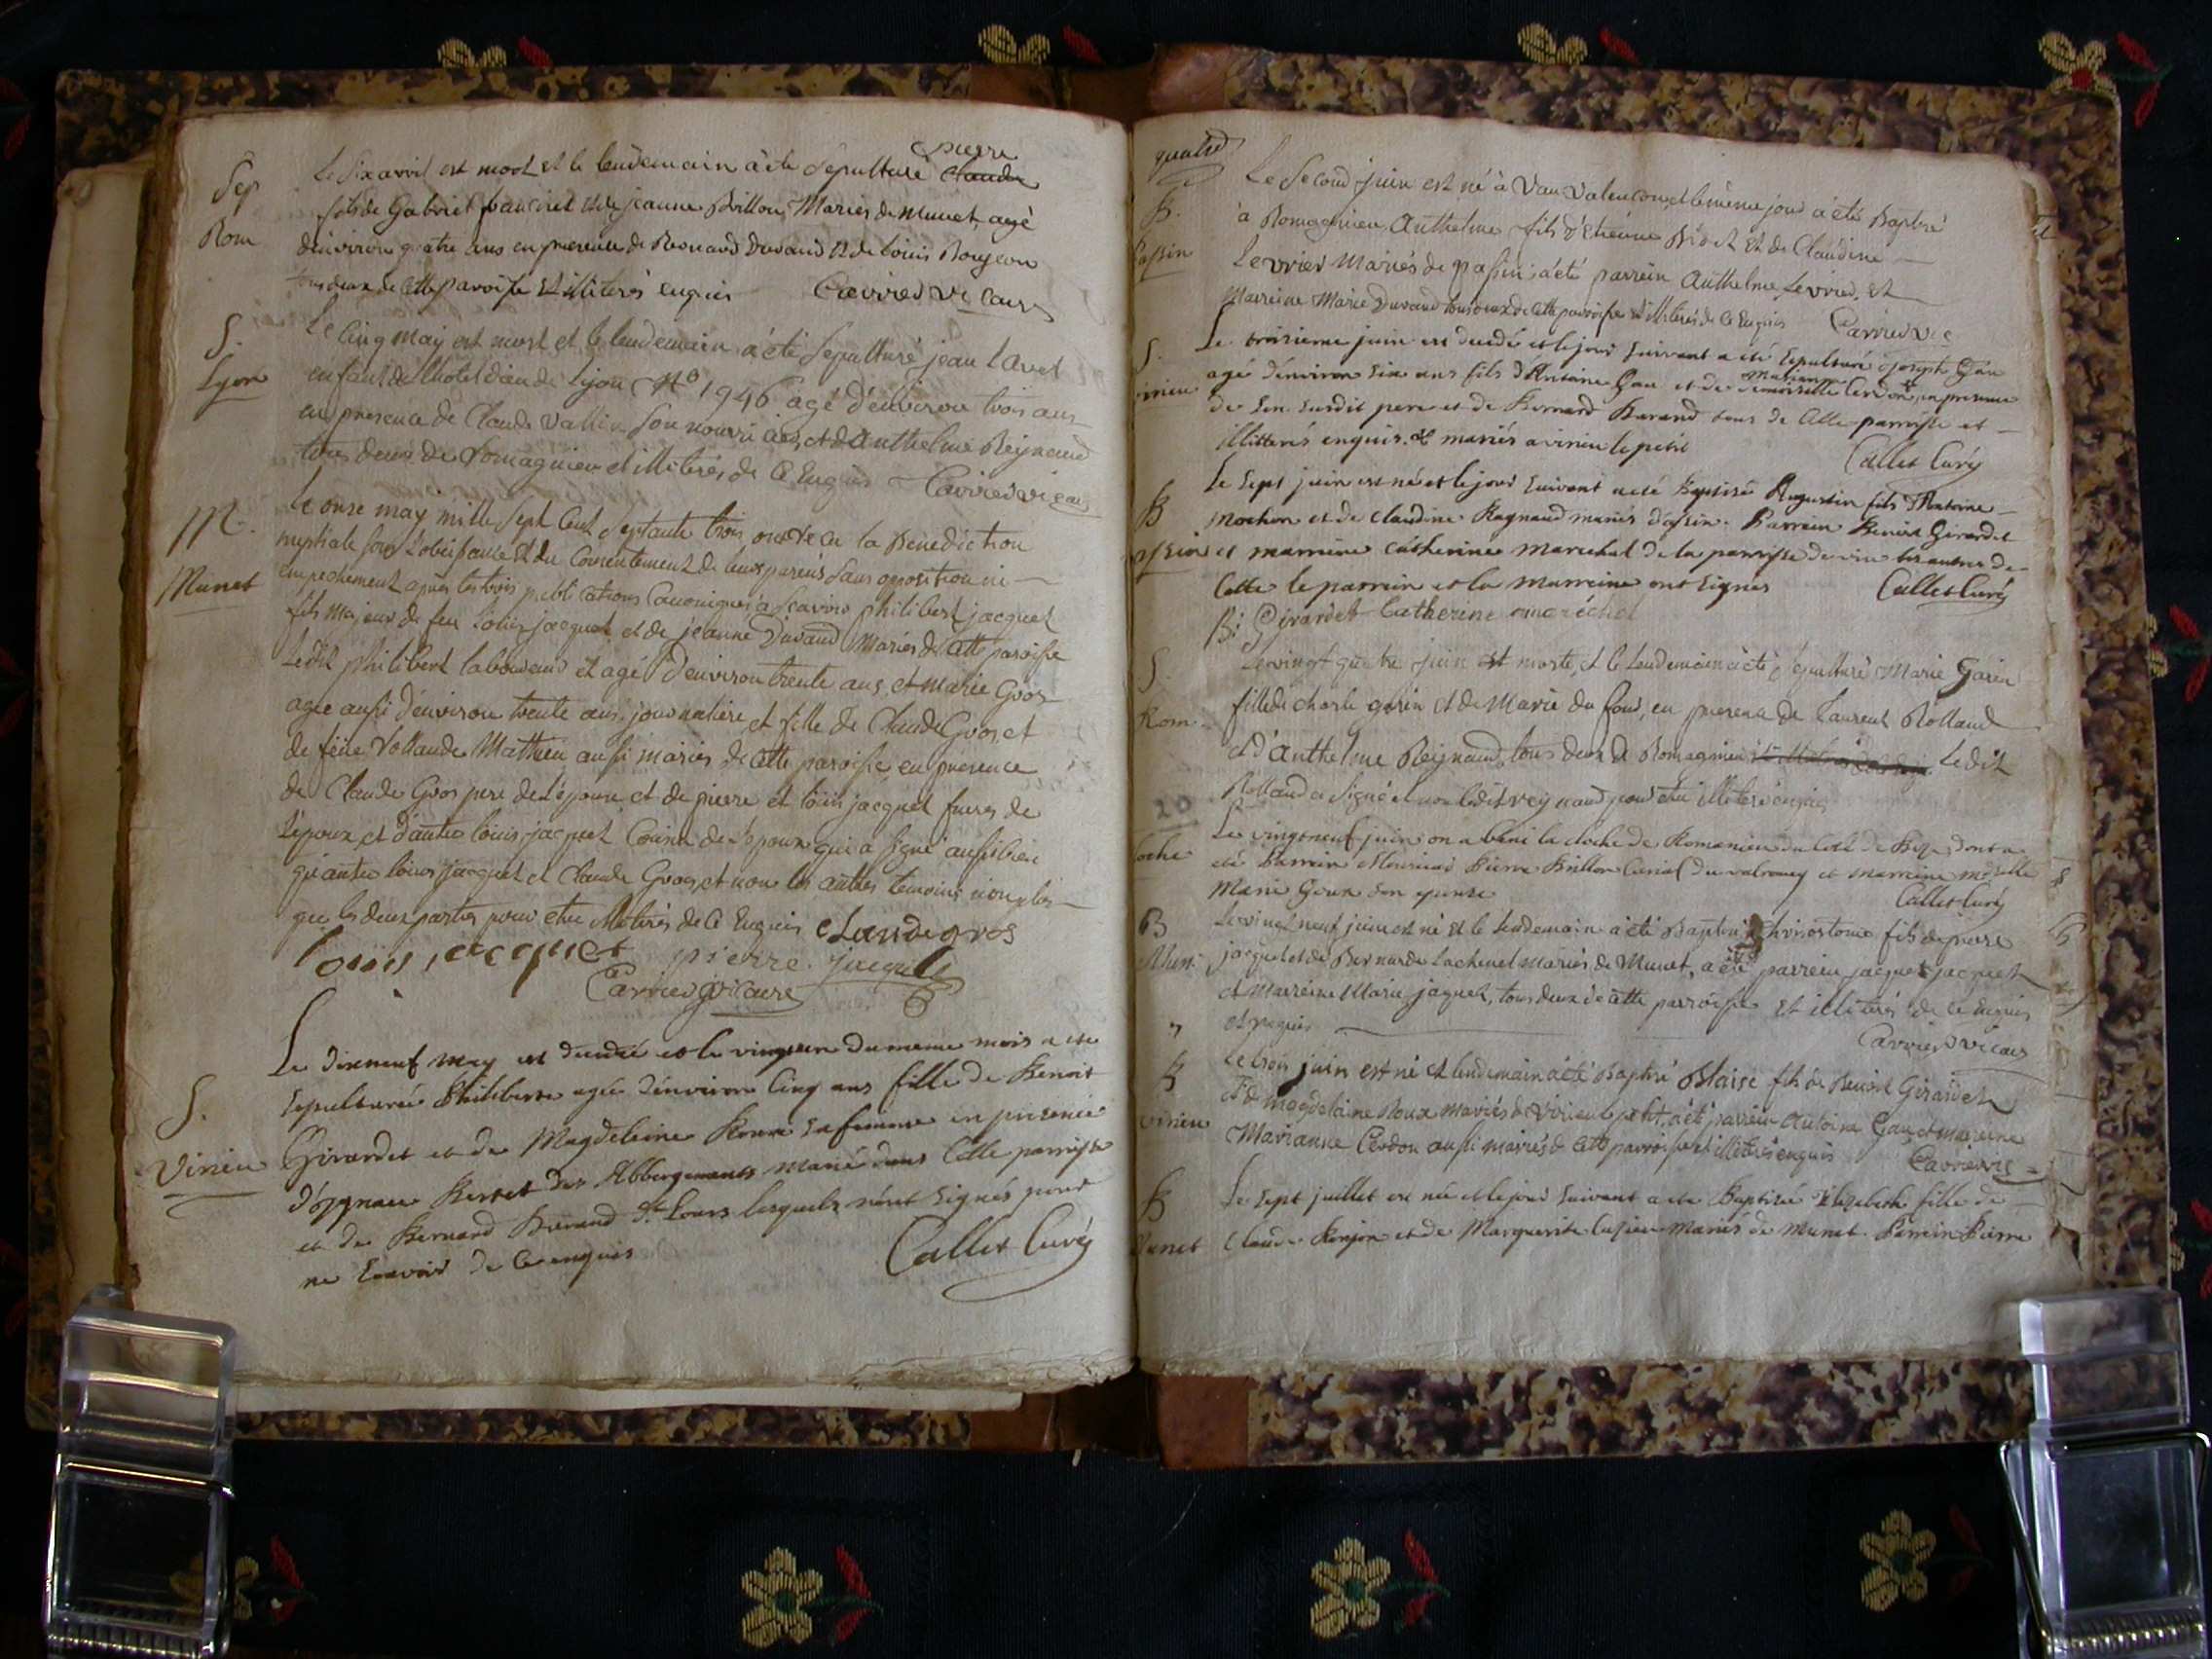 pierre
Sep Le six avril est mort et le lendemain a été sepulturé Claude
fils de Gabriel et de jeanne Brillon Mariés de Munet, agé
Rom d'environ quatre ans en presence de Bernard Durand et de Louis Bonjeon
tous deux de cette paroisse et illiterés enquis Carrier vicaire
S. Le cinq may est mort et le lendemain a été sepulturé jean
Lyon enfant de l'hotel dieu de Lyon No 1946 agé d'environ trois ans
en presence de Claude Vallin son nourricier, et d'anthelme Reynaud
tous deux de Romagnieu et illiterés de ce Enquis Carrier vicaire
M. Le onze may mille sept cent septante trois ont recu la Benediction
nuptiale sous l'obeissance et du consentement de leurs parens sans oposition ni
Munet empechement apres les trois publications Canoniques a scavoir philibert jacquet
fils majeur de feu Louis jacquet et de jeanne Durand Mariés de cette paroisse
Ledit philibert laboureur et agé d'environ trente ans, et marie Gros
agée aussi d'environ trente ans, journaliere et fille de Claude Gros, et
de feüe Matthieu aussi mariés de cette paroisse, en presence
de Claude Gros pere de l'épouse, et de pierre et loüis jacquet freres de
l'epoux, et d'autre loüis jacquet Cousin de l'epoux qui a signé aussi bien
qu'autre loüis jacquet et Claude Gros, et non les autres temoins, non plus
que les deux parties pour etre illiterés de ce Enquis Claude gros
loüis jacquet pierre jacquet
Carrier vicaire
Le dixneuf may est decedée et le vingt un du meme mois a eté
S. sepulturée Philiberte agée d'environ cinq ans fille de Benoit
Virieu Girardet et de Magdeleine Roux sa femme en presence
d'ygnace Berret des Abbergements marié dans cette parroisse
et de Bernard Durand lesquels n'ont signés pour
ne scavoir de ce enquis Callet Curé
B. Le second juin est né à Vau Valen et le même jour a été Baptisé
à Romagnieu, Anthelme fils d'Etienne et de Claudine
passin Levrier Mariés de passin, a été parrein Anthelme Levrier, et
Marreine Marie Durand tous deux de cette paroisse et illiterés de ce Enquis Carrier vic
S. Le troisieme juin est decedé et le jour suivant a eté sepulturé joseph Gau
virieu agé d'environ six ans fils d'Antoine Gau et de Marianne Cerdon en presence
de son susdit pere et de Bernard Durand tous de cette parroisse et
illitterés enquis. et mariés a virieu le petit Callet Curé
B Le sept juin est né et le jour suivant a eté Baptisé Augustin fils d'Antoine
Mochon et de Claudine Raynaud mariés d'assin. Parrain Benoit Girardet
assin et marreine Catherine marechal de la parroisse de les autres de
Cette le parrein et la marreine ont signés Callet Curé
B: Girardet Catherine maréchal
S. Le vingt quatre juin est morte, et le lendemain a été sepulturé Marie Garin
Rom. fille de charle garin et de Marie du four, en presence de Laurent Rolland
et d'Anthelme Reynaud, tous deux de Romagnieu Ledit
Rolland a signé et non ledit reynaud pour etre illiteré enquis
20
cloche Le vingt neuf juin on a beni la cloche de Romanieu dont a
eté Parrein Monsieur Pierre Brillon du valromey et marreine
Marie Goux son epouse Callet Curé
B Le vingt neuf juin est né et le lendemain a été Baptisé Chrisostome fils de pierre
Mun. jacquet et de Bernarde Lachenal mariés de Munet, a eté parrein jacque jacquet
et Marreine Marie jaquet, tous deux de cette parroisse et illiterés de ce enquis
et requis Carrier vicaire
B Le trois juin est né et lendemain a été Baptisé Blaise fils de Benoit Girardet
virieu et de magdelaine Roux mariés de virieu le petit, a été parrein Antoine Gau et marreine
Marianne Cerdon aussi mariés de cette parroisse et illiterés enquis Carrier vic
B Le sept juillet est née et le jour suivant a eté Baptisée Elizabeth fille de
Munet Claude Bonjon et de Marguerite mariés de Munet. Parrein Pierre